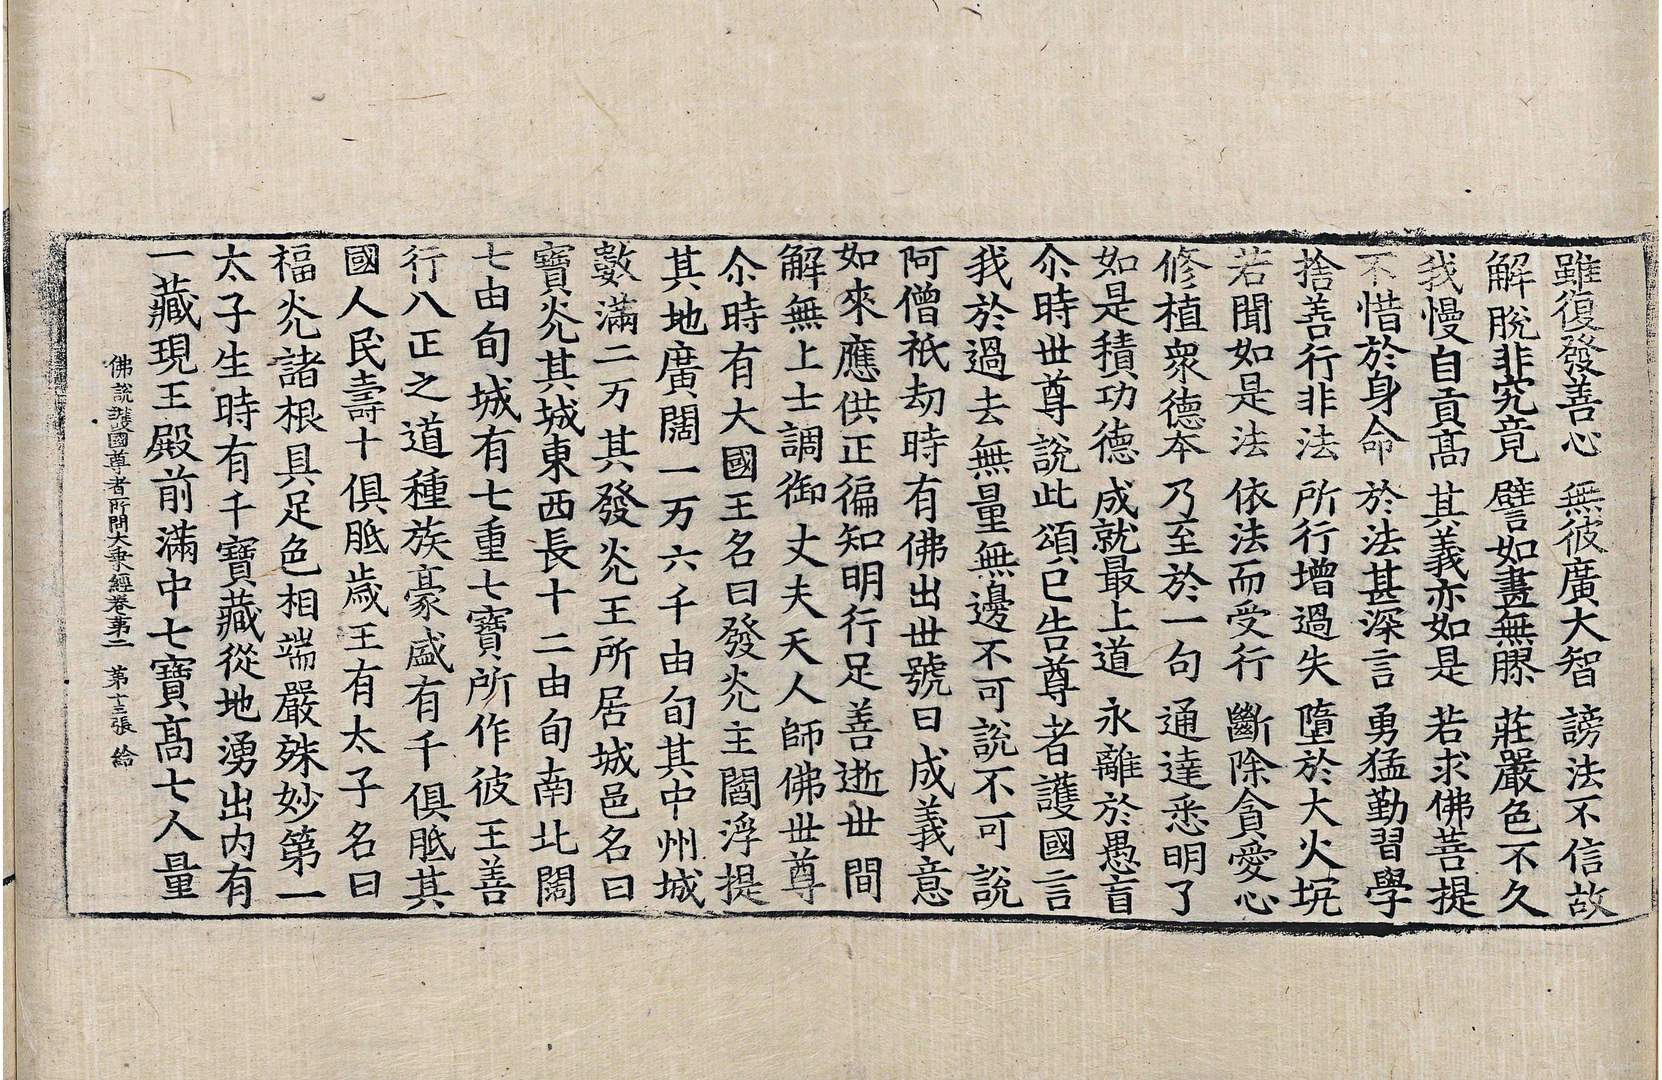 雖復發善心　無彼廣大智　謗法不信故
解脫非究竟　譬如晝無膠　莊嚴色不久
我慢自貢髙　其義亦如是　若求佛菩提
不惜於身命　於法甚深言　勇猛勤習學
捨善行非法　所行增過失　墮於大火坑
若聞如是法　依法而受行　斷除貪愛心
修植衆德本　乃至於一句　通達悉明了
如是積功德　成就最上道　永離於愚盲
尒時世尊說此頌已告尊者護國言
我於過去無量無邊不可說不可說
阿僧祇劫時有佛出世號曰成義意
如來應供正徧知明行足善逝世間
解無上士調御丈夫天人師佛世尊
尒時有大國王名曰發光主閻浮提
其地廣闊一万六千由旬其中州城
數滿二万其發光王所居城邑名曰
寶光其城東西長十二由旬南北闊
七由旬城有七重七寶所作彼王善
行八正之道種族豪盛有千俱胝其
國人民壽十俱胝歲王有太子名曰
福光諸根具足色相端嚴殊妙第一
太子生時有千寶藏從地湧出内有
一藏現王殿前滿中七寶髙七人量
佛說護國尊者所問大乘經卷第二　第十三張　給